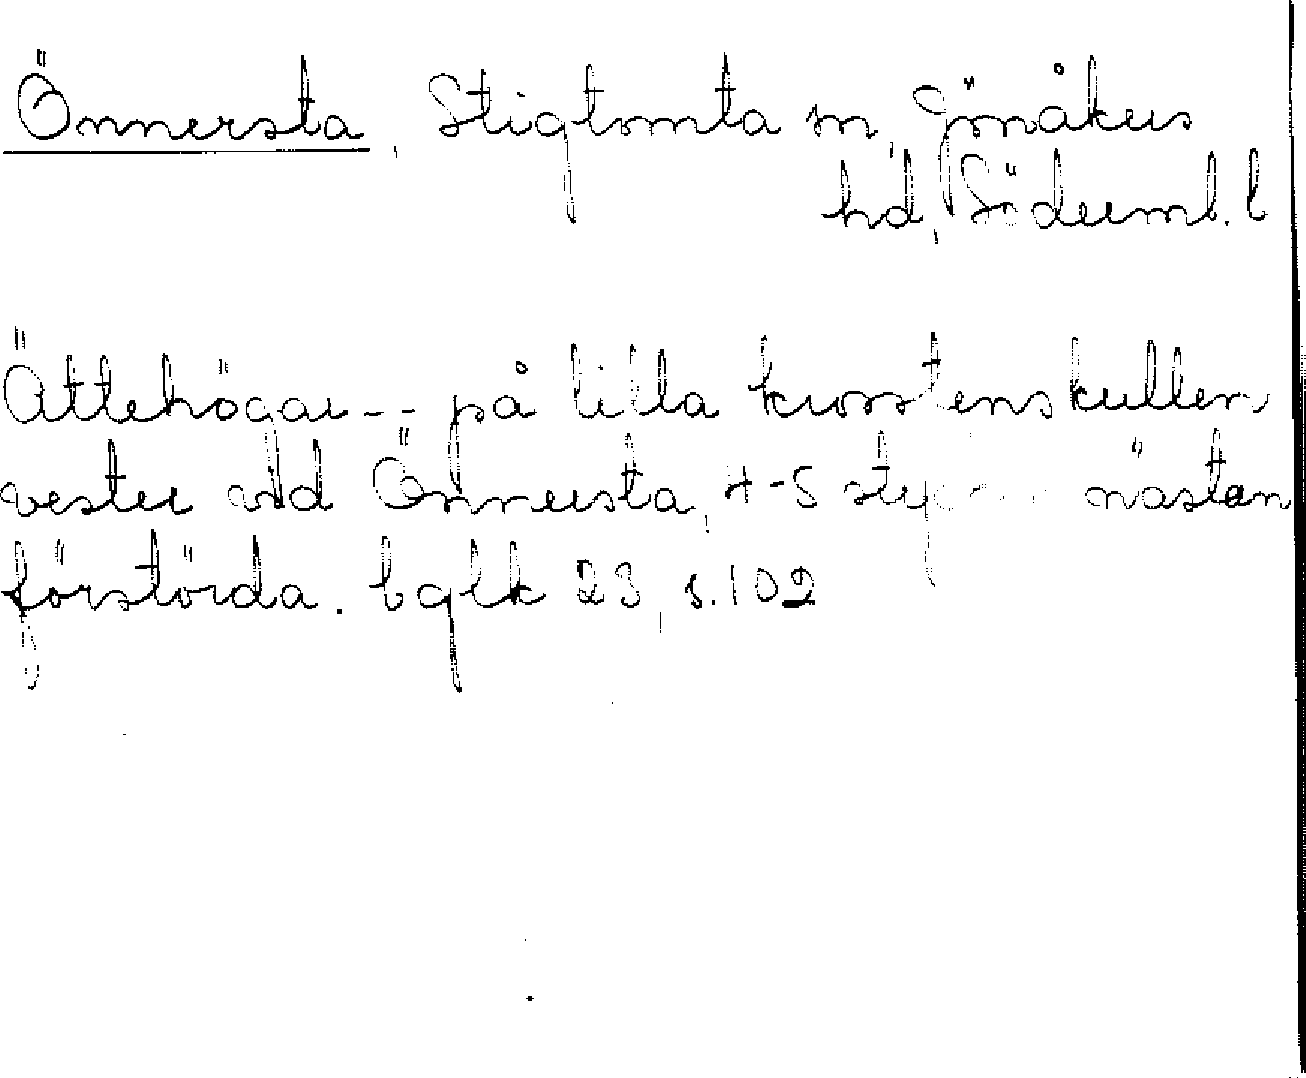 Önnersta, Stigtomta sn, Jönåkers
hd, Söderml. l
Ättehögar -- på lilla krosstenskullen
vester vid Önnersta, 4-5 stycken nästan
förstörda. bglk 23, s. 102